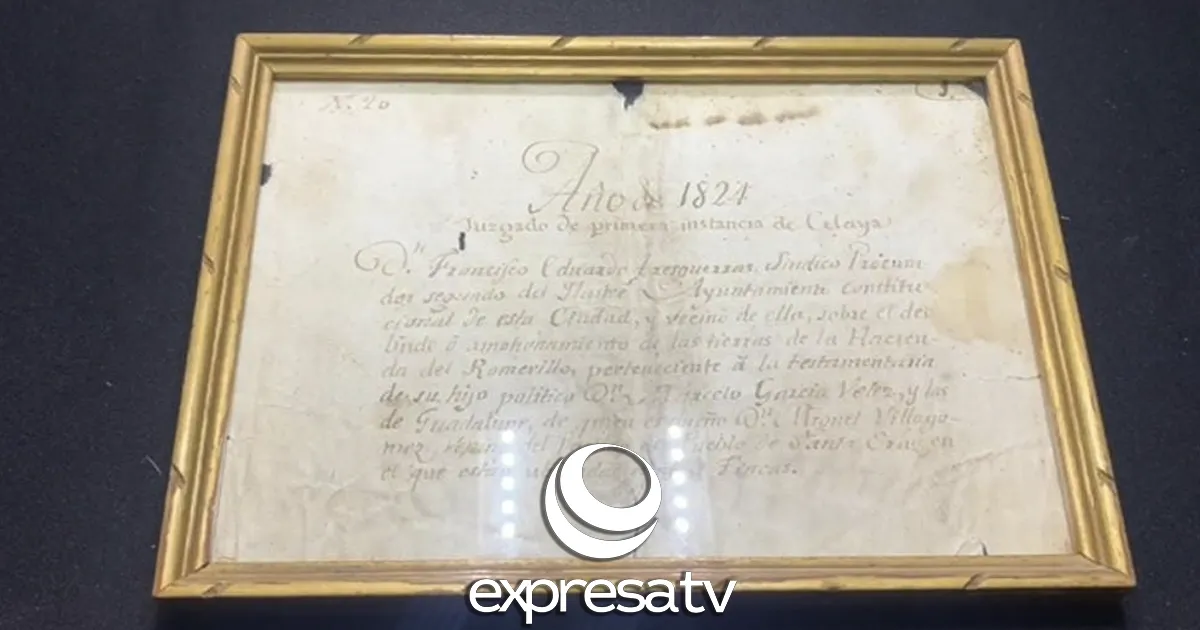 N. 20
3.
Año de 1824
Juzgado de primera instancia de Celaya
D.n Francisco Eduardo Tresguerras, Sindico Procura-
dor segundo del Ilustre Ayuntamiento constitu-
cional de esta Ciudad, y vecino de ella, sobre el des
linde ó amohonamiento de las tierras de la Hacien-
da del Romerillo, perteneciente á la testamentaria
de su hijo politico D.n Marcelo Garcia Velez, y las
de Guadalupe, de quien es dueño D.n Miguel Villago-
mez, vecino del Pueblo de Santa Cruz, en
el que estan Fincas.
expresatv